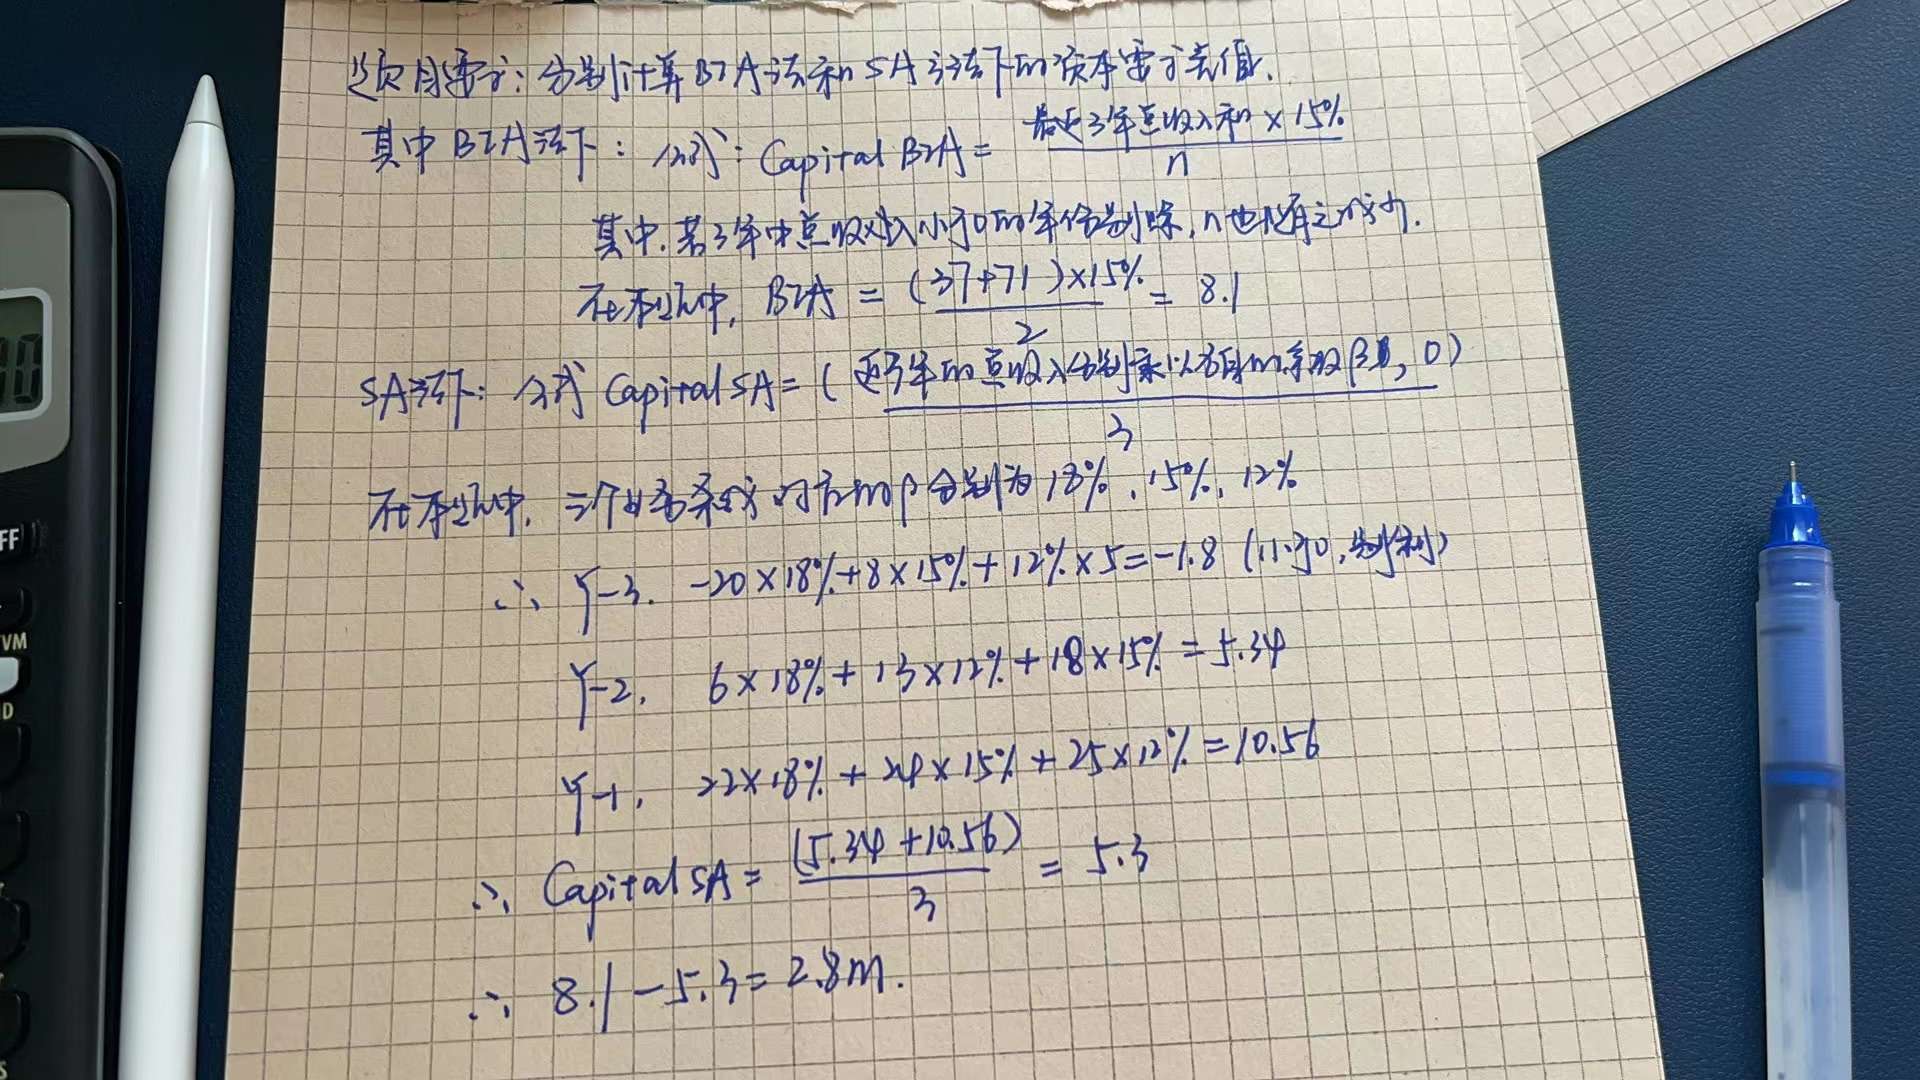 这次月要求：分别计算BIA法和SA方法下的资本要求差值.
其中BIA法下：公式：Capital BIA = 最近3年总收入和 × 15% / n
其中,若3年中总收入小于0的年份剔除,n也随之减少.
在本题中, BIA = (37+71)×15% / 2 = 8.1
SA法下：公式 Capital SA = (近3年的总收入分别乘以各自的系数β, 0) / 3
在本题中, 三个业务条线对应的β分别为18%、15%、12%
∴ Y-3. -20×18%+8×15%+12%×5=-1.8 (小于0,剔除)
Y-2. 6×18%+13×12%+18×15%=5.34
Y-1. 22×18%+24×15%+25×12%=10.56
∴ Capital SA = (5.34+10.56) / 3 = 5.3
∴ 8.1-5.3=2.8m.
00
FF
VM
D